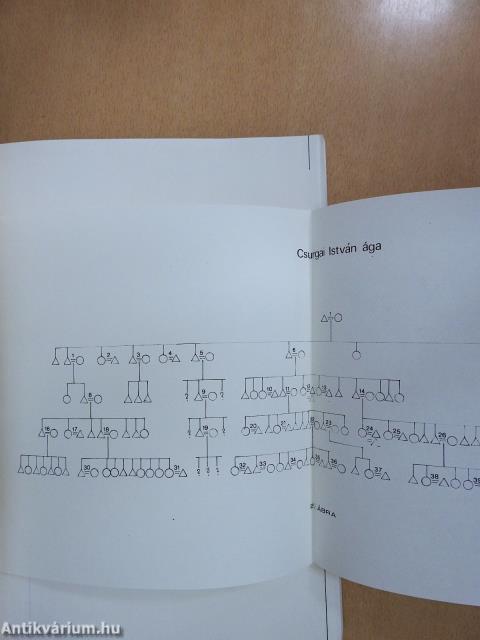 Csurgai István ága
1 2 3 4 5 6
8 9 10 11 13 14
16 17 18 19 20 21 23 24 25 26
30 31 32 33 34 35 36 37 38 39
? ? ? ?
? ?
? ? ?
ÁBRA
Antikvárium.hu